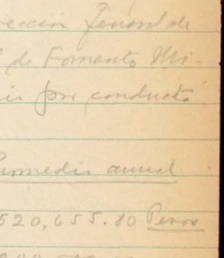 ección General de
de Fomento Mi-
por conducto
Promedio anual
520,655.80 Pesos